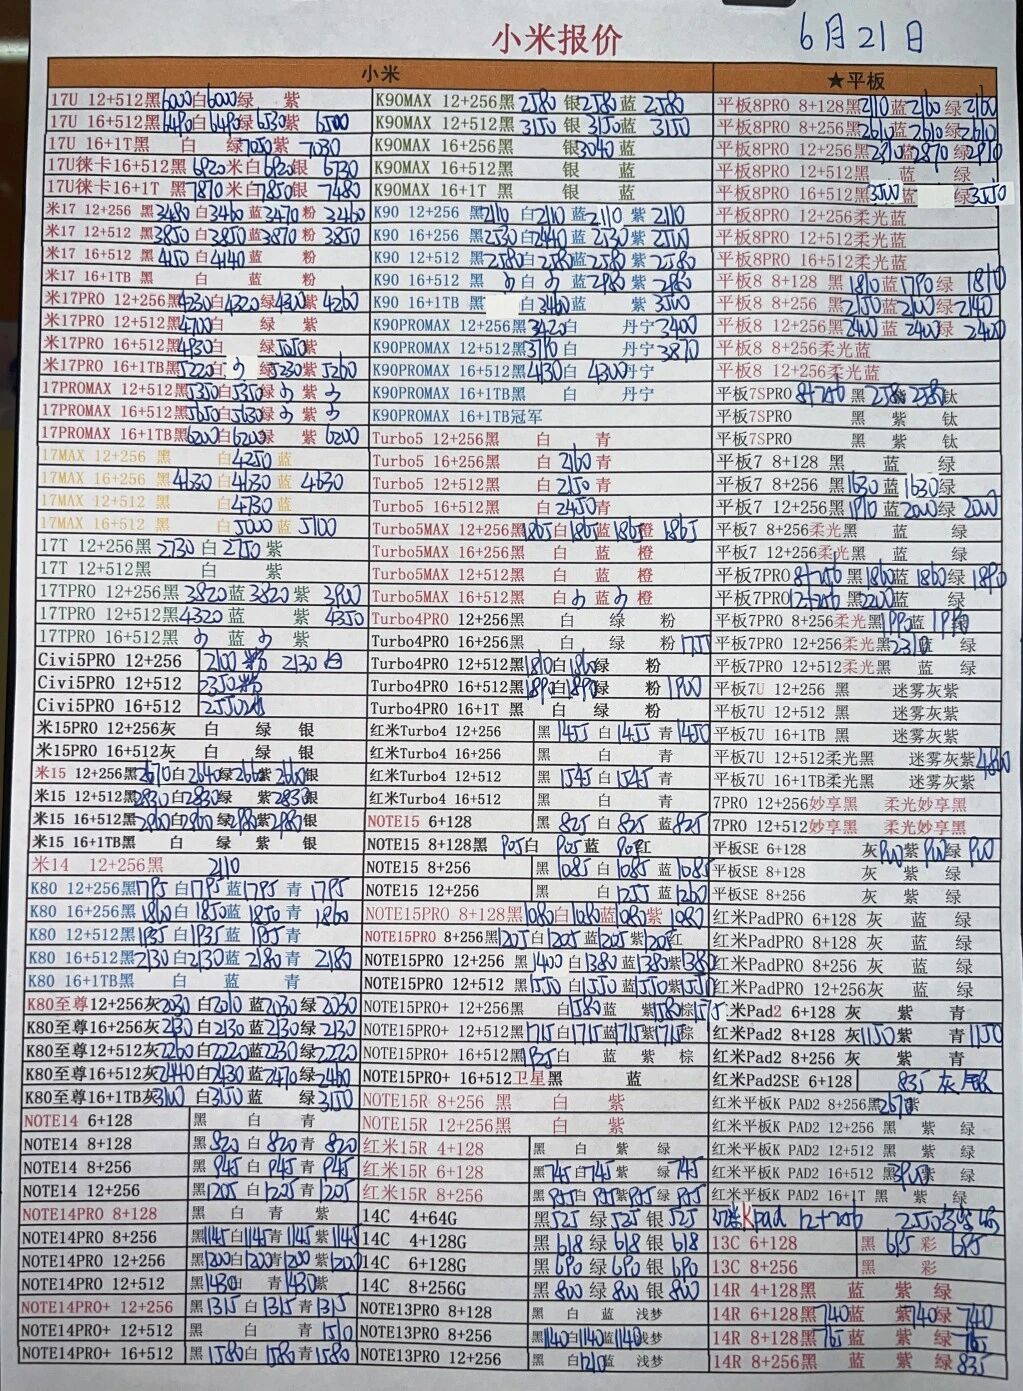 小米报价 6月21日
小米
17U 12+512黑6000白6000绿 紫
17U 16+512黑6490白6490绿6530紫 6500
17U 16+1T黑 白 绿7050紫 7030
17U徕卡16+512黑6920米白6920银 6730
17U徕卡16+1T黑7870米白7850银 7480
米17 12+256 黑3480白3460蓝3470粉 3460
米17 12+512 黑3850白3850蓝3870粉 3850
米17 16+512 黑4150白4140蓝 粉
米17 16+1TB 黑 白 蓝 粉
米17PRO 12+256黑4230白4320绿4300紫 4260
米17PRO 12+512黑4700白 绿 紫
米17PRO 16+512黑4930白 绿5050紫
米17PRO 16+1TB黑5220白 绿5230紫 5260
17PROMAX 12+512黑5350白5350绿 紫
17PROMAX 16+512黑5650白5630绿 紫
17PROMAX 16+1TB黑6200白6200绿 紫 6200
17MAX 12+256 黑 白4250 蓝
17MAX 16+256 黑4630白4630 蓝 4630
17MAX 12+512 黑 白4730蓝
17MAX 16+512 黑 白5000蓝 5100
17T 12+256黑 2730 白 2750 紫
17T 12+512黑 白 紫
17TPRO 12+256黑 3820 蓝3820 紫 3900
17TPRO 12+512黑4320 蓝 紫 4350
17TPRO 16+512黑 蓝 紫
Civi5PRO 12+256 2100 紫 2130 白
Civi5PRO 12+512 2350
Civi5PRO 16+512 2550
米15PRO 12+256灰 白 绿 银
米15PRO 16+512灰 白 绿 银
米15 12+256黑2670白2640绿2660紫2660银
米15 12+512黑2830白2830绿 紫2830银
米15 16+512黑2960白2960 绿2980紫2980银
米15 16+1TB黑 白 绿 紫 银
米14 12+256黑 2110
K80 12+256黑1795 白1795蓝1795 青 1795
K80 16+256黑1860白 1850蓝 1850 青 1860
K80 12+512黑1935 白1935蓝 1955青
K80 16+512黑2130白2130蓝 2180青 2180
K80 16+1TB黑 白 蓝 青
K80至尊12+256灰2030 白2010 蓝2030 绿 2030
K80至尊16+256灰2130 白2130 蓝2130 绿2130
K80至尊12+512灰2260 白2220蓝2230 绿2220
K80至尊16+512灰2440 白2430 蓝2470 绿2460
K80至尊16+1TB灰3100 白3150 蓝 绿 3150
NOTE14 6+128 黑 白 青
NOTE14 8+128 黑 820 白 820 青 820
NOTE14 8+256 黑 945 白 945 青 945
NOTE14 12+256 黑1205 白1205青1205
NOTE14PRO 8+128 黑 白 青 紫
NOTE14PRO 8+256 黑1145白1145青1145紫1145
NOTE14PRO 12+256 黑1200白1200青1200 紫1200
NOTE14PRO 12+512 黑1430白 青1430紫
NOTE14PRO+ 12+256 黑1315 白1315 青1315
NOTE14PRO+ 12+512 黑 白 青 1510
NOTE14PRO+ 16+512 黑1580 白1580 青1580
K90MAX 12+256黑 2580 银2580 蓝 2580
K90MAX 12+512黑 3150 银 3150蓝 3150
K90MAX 16+256黑 银3040 蓝
K90MAX 16+512黑 银 蓝
K90MAX 16+1T 黑 银 蓝
K90 12+256 黑2110 白2110 蓝2110 紫 2110
K90 16+256 黑2530白2440 蓝 2530紫 2500
K90 12+512 黑2580白2580蓝2580 紫 2580
K90 16+512 黑 白 蓝2980紫 2980
K90 16+1TB 黑 白3460蓝 紫 3500
K90PROMAX 12+256黑3420白 丹宁3400
K90PROMAX 12+512黑3790 白 丹宁3870
K90PROMAX 16+512黑4430 白 4300丹宁
K90PROMAX 16+1TB黑 白 丹宁
K90PROMAX 16+1TB冠军
Turbo5 12+256黑 白 青
Turbo5 16+256黑 白 2160青
Turbo5 12+512黑 白 2150青
Turbo5 16+512黑 白 2450青
Turbo5MAX 12+256黑1865白1865蓝1865橙 1865
Turbo5MAX 16+256黑 白 蓝 橙
Turbo5MAX 12+512黑 白 蓝 橙
Turbo5MAX 16+512黑 白 蓝 橙
Turbo4PRO 12+256黑 白 绿 粉
Turbo4PRO 16+256黑 白 绿 粉 1755
Turbo4PRO 12+512黑1810白1860绿 粉
Turbo4PRO 16+512黑1890白1890绿 粉 1900
Turbo4PRO 16+1T 黑 白 绿 粉
红米Turbo4 12+256 黑 1455 白 1455 青 1450
红米Turbo4 16+256 黑 白 青
红米Turbo4 12+512 黑 1545 白 1545 青
红米Turbo4 16+512 黑 白 青
NOTE15 6+128 黑 825 白 825 蓝825
NOTE15 8+128黑 905白 905蓝 905红
NOTE15 8+256 黑 1085 白 1085 蓝 1085
NOTE15 12+256 黑 白 1255 蓝1260
NOTE15PRO 8+128黑1080白1080蓝1080紫 1080
NOTE15PRO 8+256黑1205白1205 蓝1205 紫1205红
NOTE15PRO 12+256 黑1400 白1380蓝1380紫1380
NOTE15PRO 12+512 黑1550 白1550蓝1550紫1550
NOTE15PRO+ 12+256黑 白1580蓝 紫1580棕1575
NOTE15PRO+ 12+512黑1715白1715蓝1715紫1715棕
NOTE15PRO+ 16+512黑1935白 蓝 紫 棕
NOTE15PRO+ 16+512卫星黑 蓝
NOTE15R 8+256 黑 白 紫
NOTE15R 12+256 黑 白 紫
红米15R 4+128 黑 白 紫 绿
红米15R 6+128 黑745白745紫 绿745
红米15R 8+256 黑855白855紫855 绿 855
14C 4+64G 黑525 绿525 银 525
14C 4+128G 黑618 绿 618 银 618
14C 6+128G 黑690 绿690 银 690
14C 8+256G 黑800 绿800 银 800
NOTE13PRO 8+128 黑 白 蓝 浅梦
NOTE13PRO 8+256 黑1140白1140蓝1140浅梦
NOTE13PRO 12+256 黑 白1210蓝 浅梦
★平板
平板8PRO 8+128黑2110 蓝2160 绿2160
平板8PRO 8+256黑2610蓝2610 绿2610
平板8PRO 12+256黑2810蓝2870 绿2810
平板8PRO 12+512黑 蓝 绿
平板8PRO 16+512黑3500 蓝 绿 3550
平板8PRO 12+256柔光蓝
平板8PRO 12+512柔光蓝
平板8PRO 16+512柔光蓝
平板8 8+128 黑 1810蓝1790 绿 1810
平板8 8+256 黑 2150蓝2100 绿 2140
平板8 12+256 黑2400 蓝2400 绿 2400
平板8 8+256柔光蓝
平板8 12+256柔光蓝
平板7SPRO 8+256 黑 2580 紫 2580 钛
平板7SPRO 黑 紫 钛
平板7SPRO 黑 紫 钛
平板7 8+128 黑 蓝 绿
平板7 8+256 黑1630蓝 1630绿
平板7 12+256 黑1910蓝2000绿 2000
平板7 8+256柔光黑 蓝 绿
平板7 12+256柔光黑 蓝 绿
平板7PRO 8+256 黑1860蓝 1860绿 1890
平板7PRO12+256 黑2200蓝 绿
平板7PRO 8+256柔光黑1990蓝 1990
平板7PRO 12+256柔光黑2310蓝 绿
平板7PRO 12+512柔光黑 蓝 绿
平板7U 12+256 黑 迷雾灰紫
平板7U 12+512 黑 迷雾灰紫
平板7U 16+1TB 黑 迷雾灰紫
平板7U 12+512柔光黑 迷雾灰紫4860
平板7U 16+1TB柔光黑 迷雾灰紫
7PRO 12+256妙享黑 柔光妙享黑
7PRO 12+512妙享黑 柔光妙享黑
平板SE 6+128 灰900紫900绿 900
平板SE 8+128 灰 紫 绿
平板SE 8+256 灰 紫 绿
红米PadPRO 6+128 灰 蓝 绿
红米PadPRO 8+128 灰 蓝 绿
红米PadPRO 8+256 灰 蓝 绿
红米PadPRO 12+256灰 蓝 绿
红米Pad2 6+128 灰 紫 青
红米Pad2 8+128 灰1150紫 青 1150
红米Pad2 8+256 灰 紫 青
红米Pad2SE 6+128 835 灰 银
红米平板K PAD2 8+256黑2670紫
红米平板K PAD2 12+256 黑 紫 绿
红米平板K PAD2 12+512 黑 紫 绿
红米平板K PAD2 16+512 黑3900紫 绿
红米平板K PAD2 16+1T 黑 紫 绿
Kpad 12+256 2550
13C 6+128 黑 695 彩 695
13C 8+256 黑 彩
14R 4+128黑 蓝 紫 绿
14R 6+128黑740蓝 紫740绿 740
14R 8+128黑765蓝 紫 绿 765
14R 8+256黑 蓝 紫 绿 835